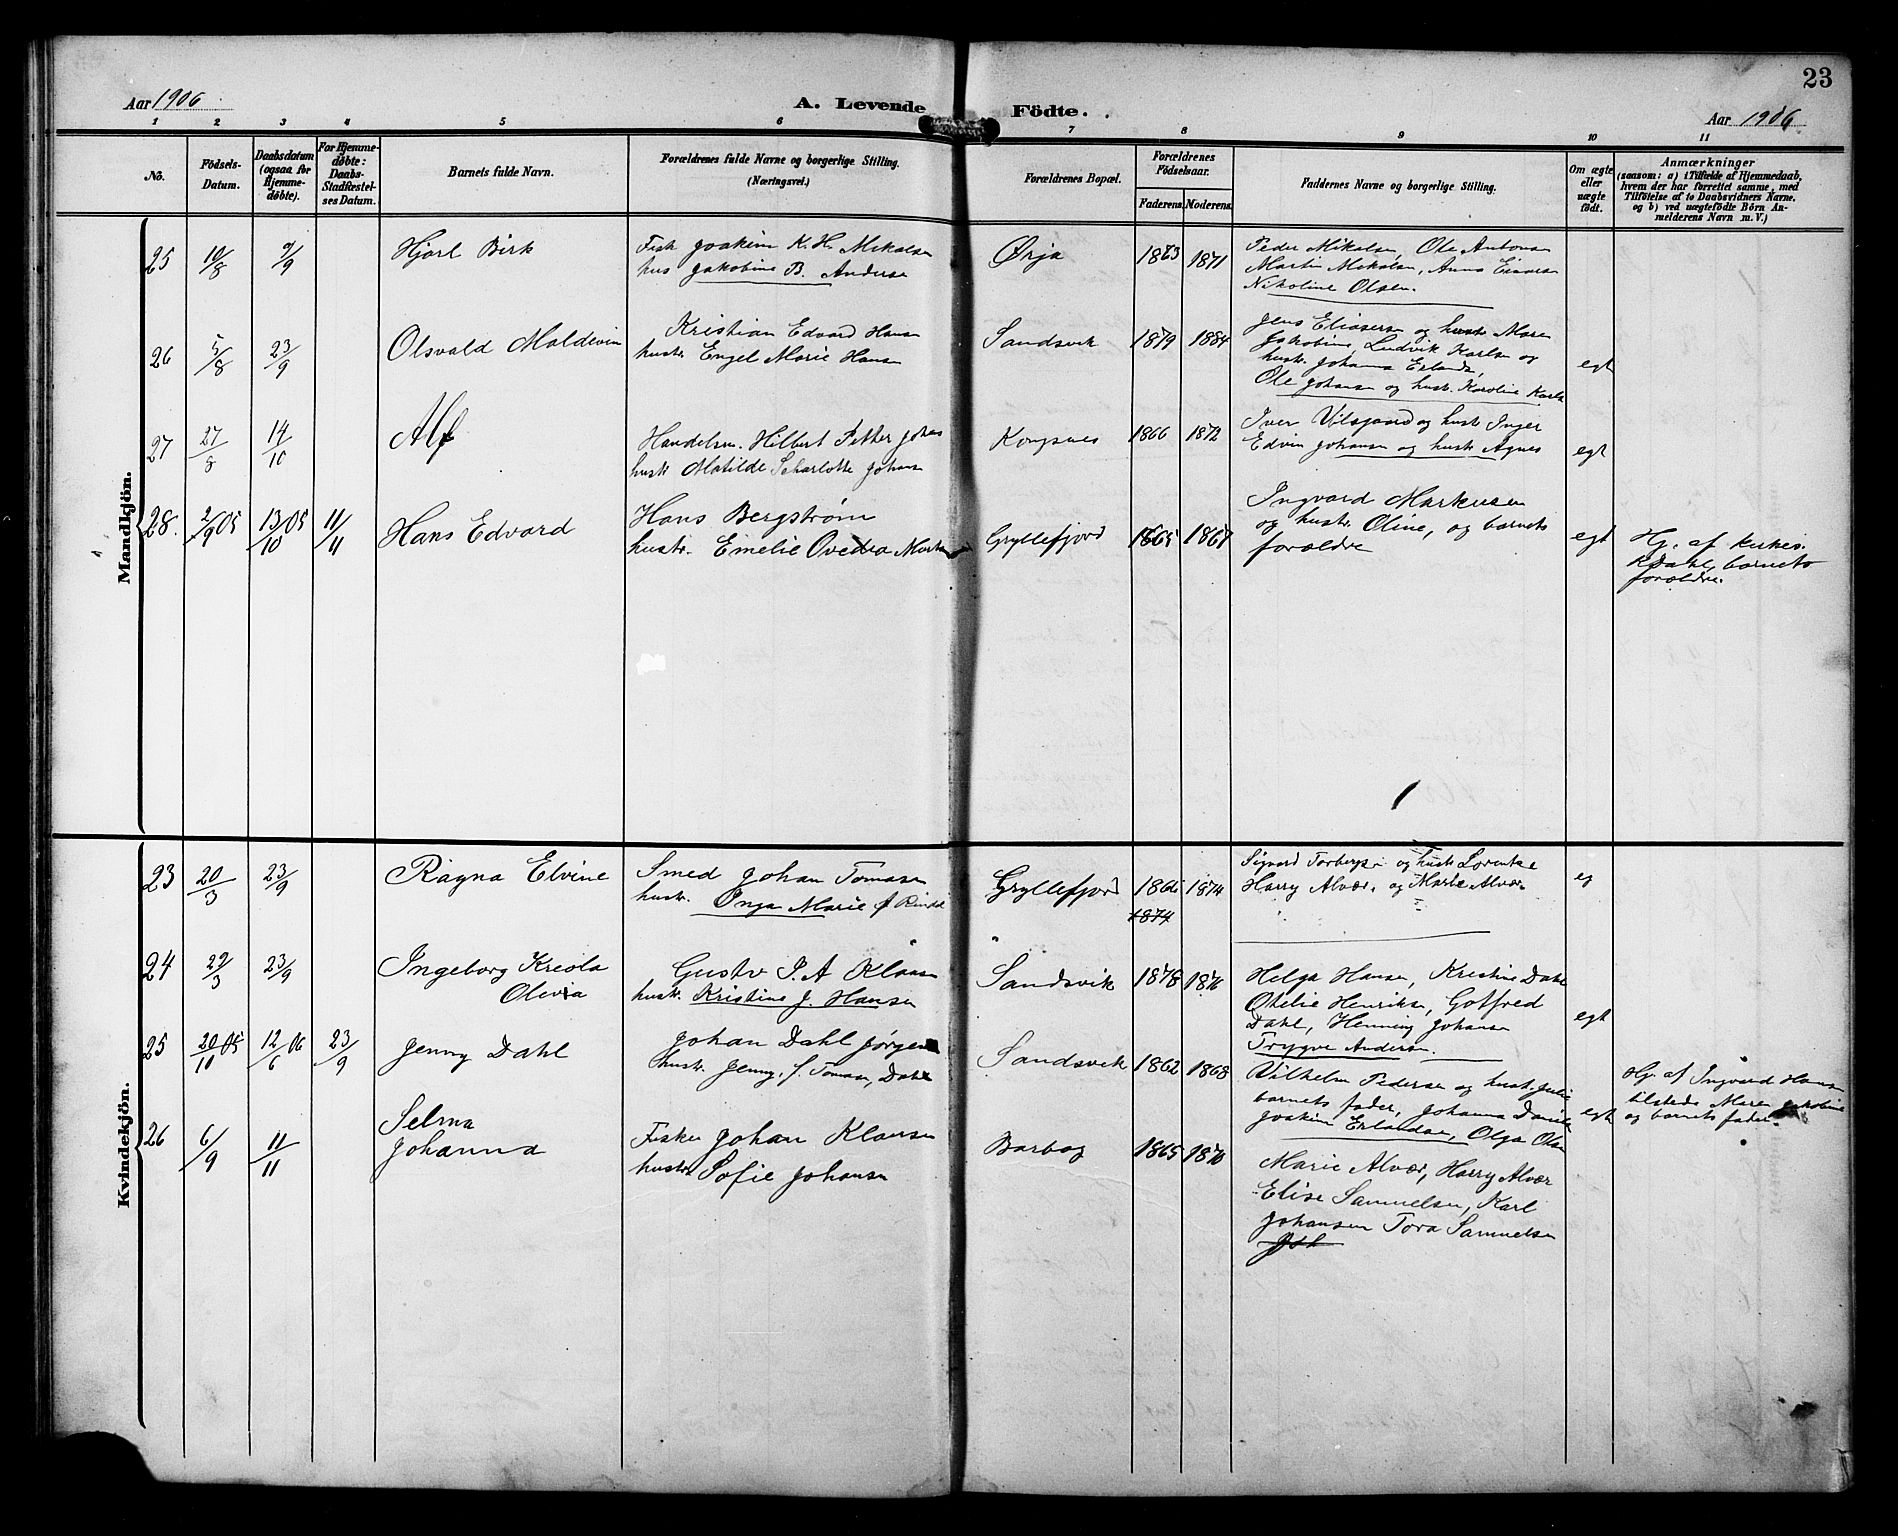 23
Aar 1906
A. Levende Födte.
Aar 1906
1 2 3 4 5 6 7 8 9 10 11
No.
Födsels-
Datum.
Daabsdatum
(ogsaa for
Hjemme-
døbte).
For Hjemme-
døbte:
Daabs-
Stadfæstel-
ses Datum.
Barnets fulde Navn.
Forældrenes fulde Navne og borgerlige Stilling.
(Næringsvei.)
Forældrenes Bopæl.
Forældrenes
Födselsaar.
Faderens. Moderens.
Faddernes Navne og borgerlige Stilling.
Om ægte
eller
uægte
födt.
Anmærkninger
(saasom: a) i Tilfælde af Hjemmedaab,
hvem der har forrettet samme, med
Tilföielse af to Daabsvidners Navne,
og b) ved uægtefödte Börn An-
melderens Navn m. V.)
Mandkjön.
25 10/8 9/9 Hjørl Birk
Fisk Joakim K. H. Mikalsen
hus Jakobine B. Anderse
Ørja 1863 1871
Peder Mikalsen, Ole Antonsen
Martin Mikalsen, Anna
Nikoline Olsen.
26 5/8 23/9 Olsvald Maldevin
Kristian Edvard Hansen
hustr. Engel Marie Hansen
Sandsvik 1879 1884
Jens Eliasersen og hustr Maren
Jakobine, Ludvik Karlsen og
hustr. Johanna Erlands,
Ole Johansen og hustr. Karoline Karls
egt
27 27/8 14/10 Alf
Handelsm. Hilbert Pether Johas
hustr Matilde Scharlotte Johans
Kongsnes 1866 1872
Iver Vilsgaard og hustr Inger
Edvin Johansen og hustr Agnes
egt
28. 2/9 05 13/10 05 11/11 Hans Edvard
Hans Bergstrøm
hustr. Emelie Ovedia
Gryllefjord 1865 1867
Ingvard Markusen
og hustr. Oline, og barnets
forældre
egt
Hj. af Kirkes.
K. Dahl, barnets
forældre.
Kvindekjön.
23 20/3 23/9 Ragna Elvine
Smed Johan Tomasen
hustr. Onga Marie f
Gryllefjord 1874
1874
Sigvard Torbergs og hustr Lorentse
Harry Alvær. og Marie Alvær
eg
24 23/9 Ingeborg Kreola
Olivia
Gustv P. A Klausen
hustr. Kristine J. Hansen
Sandsvik 1878
Helga Hansen, Kristine Dahl
Otelie Henriksn, Gotfred
Dahl, Henning Johansen
Trygve Andersn.
egt
25 20/10 05 12/6 06 23/9 Jenny Dahl
Johan Dahl Jørgen
hustr. Jenny, f. Tomasn, Dahl
Sandsvik 1862 1868
Vilhelm Pedersen og hustr. Julie
barnets fader, Johanna Daniels
Joakim Erlandsen, Olga Olsn
egt
Hj. af Ingvard Hans
tilstede Maren Jakobine
og barnets fader.
26 6/9 11/11 Selma
Johanna
Fisker Johan Klausen
hustr Sofie Johansn
Barbog 1865
Marie Alvær, Harry Alvær
Elise Samuelsen, Karl
Johansen Tora Samuelsen